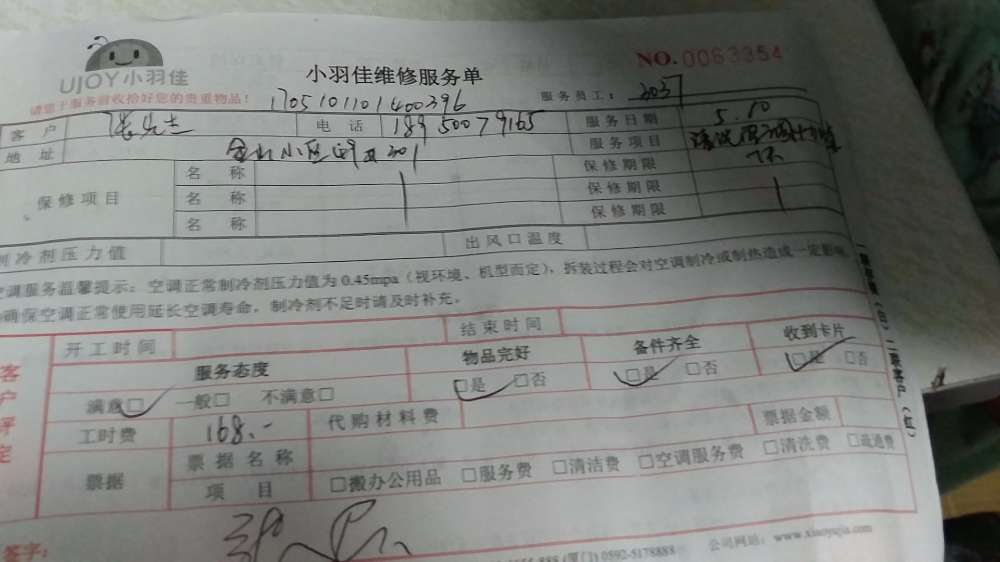 UJOY小羽佳
小羽佳维修服务单
NO.0063354
请您于服务前收拾好您的贵重物品!
1705101101400396
服务员工: 3037
客 户 张先生 电 话 18950079165 服务日期 5.10
地 址 金山小区 301 服务项目 清洗
保修项目 名 称 保修期限
名 称 保修期限
名 称 保修期限
制冷剂压力值 出风口温度
空调服务温馨提示:空调正常制冷剂压力值为 0.45mpa(视环境、机型而定),拆装过程会对空调制冷或制热造成一定影响
确保空调正常使用延长空调寿命,制冷剂不足时请及时补充。
开工时间 结束时间
客户评定
服务态度 物品完好 备件齐全 收到卡片
满意□ 一般□ 不满意□ □是 □否 □是 □否 □是 □否
工时费 168.- 代购材料费 票据金额
票据 票据名称
项 目 □搬办公用品 □服务费 □清洁费 □空调服务费 □清洗费 □疏通费
签字:
(厦门) 0592-5178888 公司网站: www.xiaoyujia.com
二联客户(红)